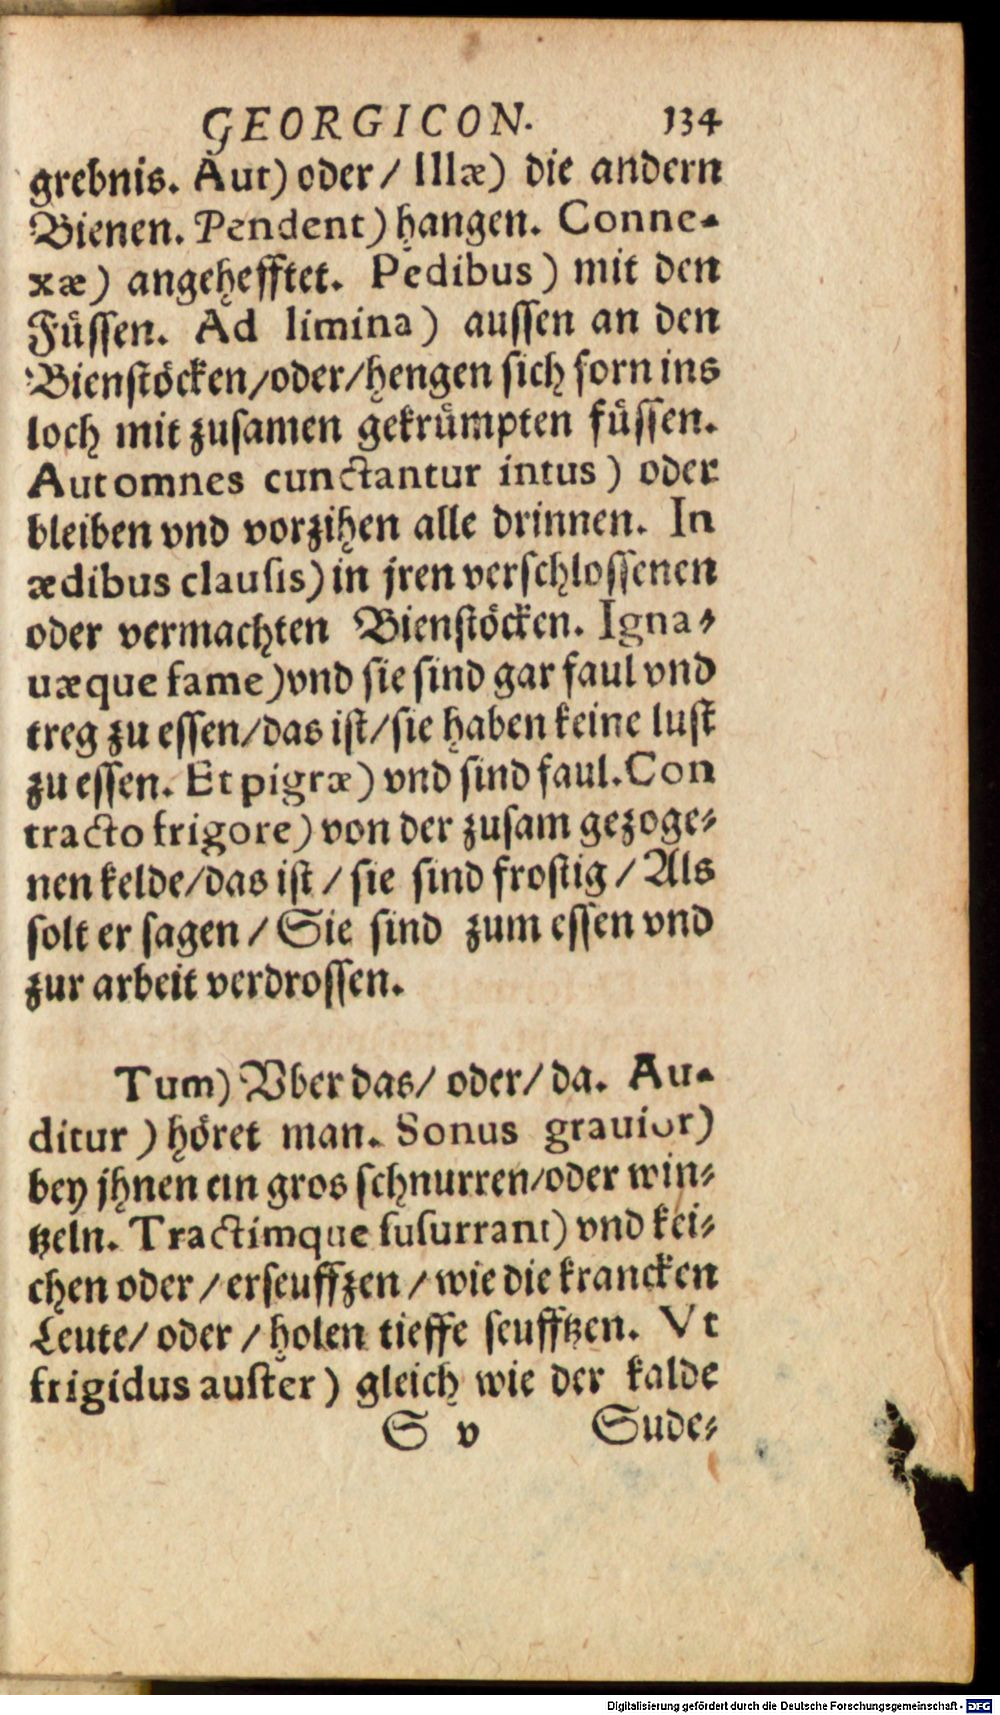 GEORGICON. 134
grebnis. Aut) oder / Illæ) die andern
Bienen. Pendent) hangen. Conne-
xæ) angehefftet. Pedibus) mit den
Füssen. Ad limina) aussen an den
Bienstöcken/oder/hengen sich forn ins
loch mit zusamen gekrümpten füssen.
Aut omnes cunctantur intus) oder
bleiben vnd vorzihen alle drinnen. In
ædibus clausis) in jren verschlossenen
oder vermachten Bienstöcken. Igna-
uæque fame)vnd sie sind gar faul vnd
treg zu essen/das ist/sie haben keine lust
zu essen. Et pigræ) vnd sind faul. Con
tracto frigore) von der zusam gezoge-
nen kelde/das ist / sie sind frostig / Als
solt er sagen / Sie sind zum essen vnd
zur arbeit verdrossen.
Tum) Vber das/ oder/ da. Au-
ditur) höret man. Sonus grauior)
bey jhnen ein gros schnurren/oder win-
tzeln. Tractimque susurrant) vnd kei-
chen oder / erseuffzen / wie die krancken
Leute/ oder / holen tieffe seufftzen. Vt
frigidus auster) gleich wie der kalde
S v Sude-
Digitalisierung gefördert durch die Deutsche Forschungsgemeinschaft - DFG